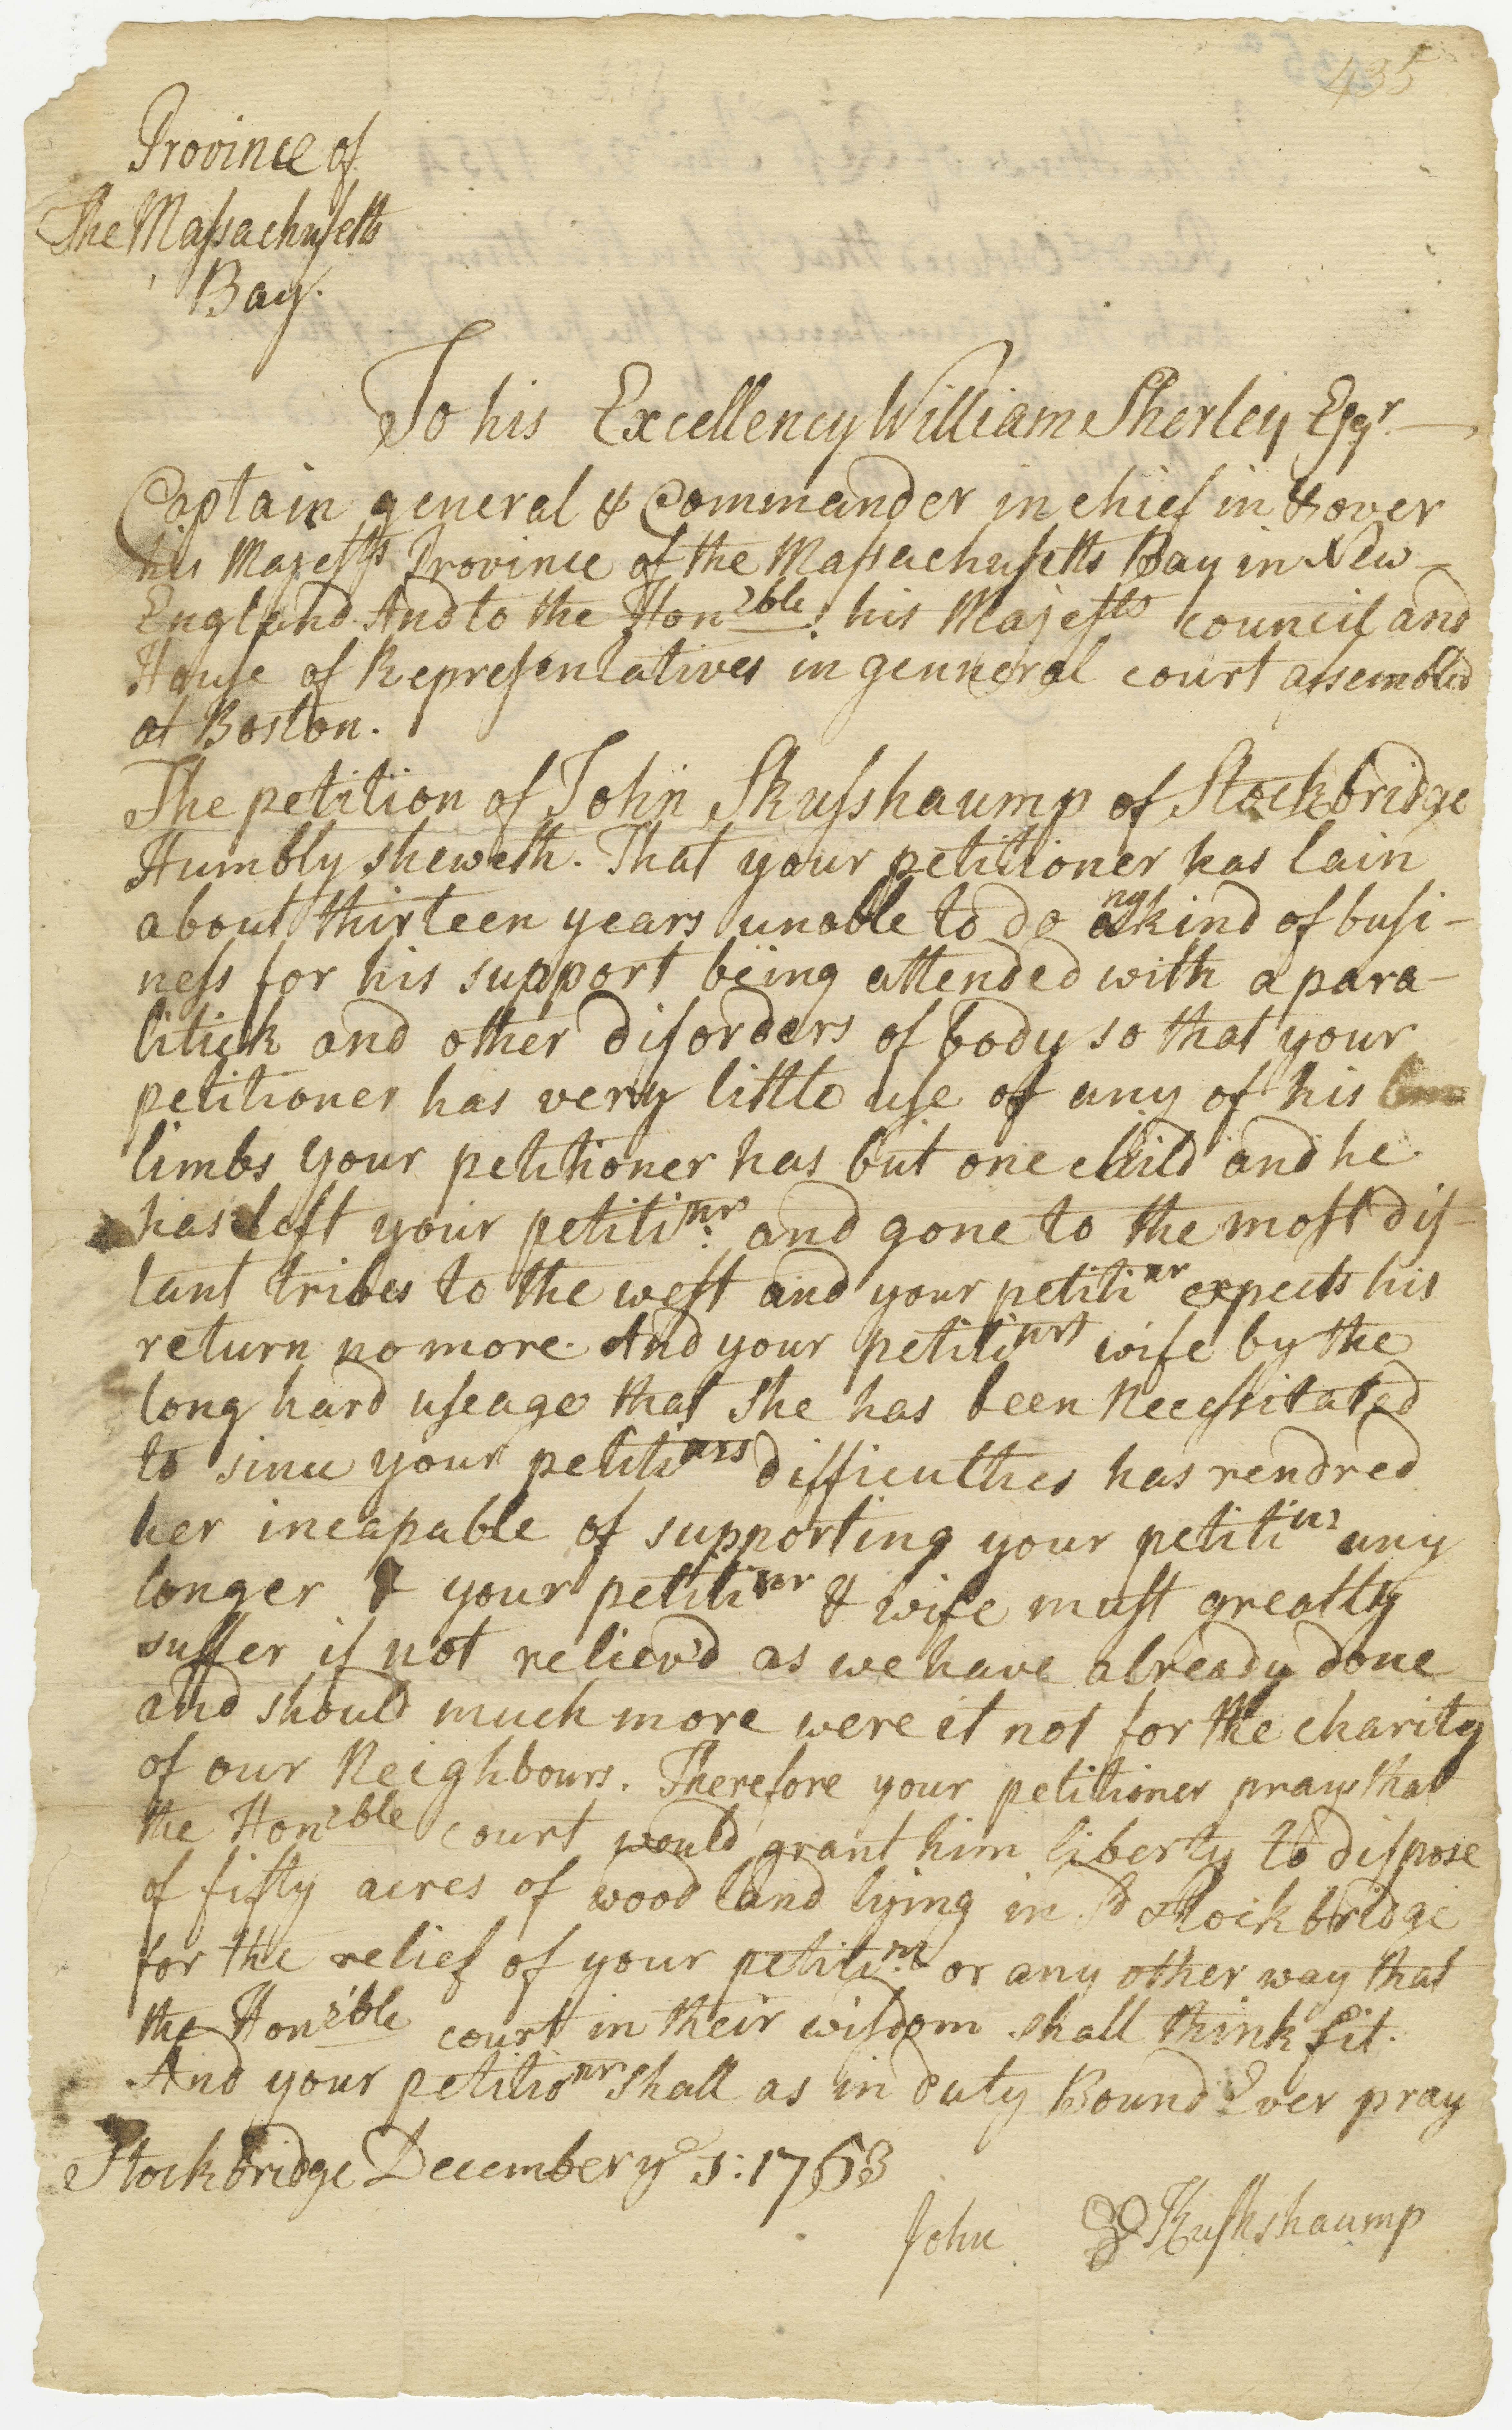 435
Province of
The Massachusetts
Bay.
To his Excellency William Sherley Esqr.
Captain general & Commander in chief in & over
his Majesths Province of the Massachusetts Bay in New
England And to the Honrble: his Majests council and
House of Representatives in genneral court assembled
at Boston.
The petition of John Skusshaump of Stockbridge
Humbly sheweth. That your petitioner has lain
about thirteen years unable to do any kind of busi-
ness for his support being attended with a para-
litick and other disorders of body so that your
petitioner has very little use of any of his
limbs your petitioner has but one child and he
has left your petitinr. and gone to the most dis-
tant tribes to the west and your petitinr expects his
return no more. And your petitinrs wife by the
long hard useage that she has been Necessitated
to since your petitinrs difficulties has rendred
her incapable of supporting your petitinr any
longer & your petitinr & wife must greatly
suffer if not reliev'd as we have already done
and should much more were it not for the charity
of our Neighbours. Therefore your petitioner prays that
the Honrble court would grant him liberty to dispose
of fifty acres of wood land lying in sd Stockbridge
for the relief of your petitinr or any other way that
the Honrble court in their wisdom shall think fit.
And your petitionr shall as in duty Bound Ever pray
Stockbridge December ye 5: 1753
John Skushshaump